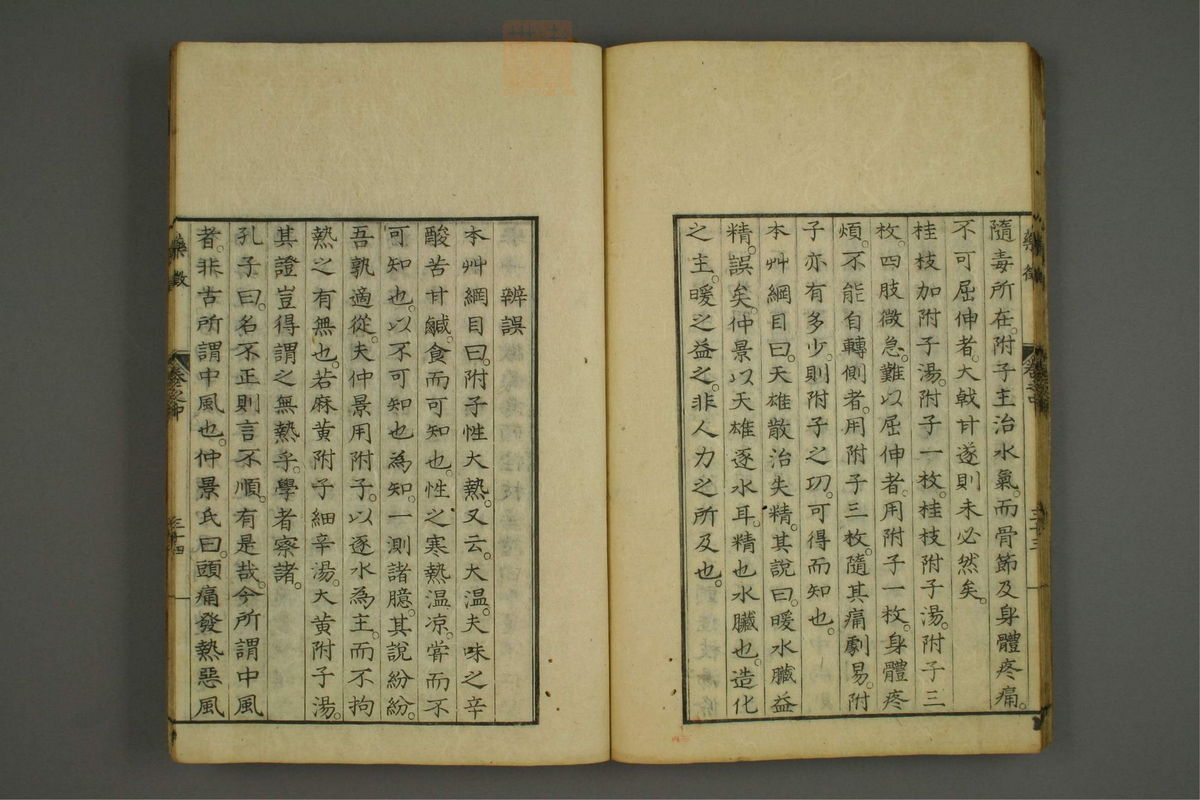 隨毒所在。附子主治水氣。而骨節及身體疼痛。
不可屈伸者。大戟甘遂則未必然矣。
桂枝加附子湯。附子一枚。桂枝附子湯。附子三
枚。四肢微急。難以屈伸者。用附子一枚。身體疼
煩。不能自轉側者。用附子三枚。隨其痛劇易。附
子亦有多少。則附子之功。可得而知也。
本艸綱目曰。天雄散治失精。其說曰。暖水臟益
精。誤矣。仲景以天雄逐水耳。精也水臟也。造化
之主。暖之益之。非人力之所及也。
藥徵
卷之中
三十三
辨誤
本艸綱目曰。附子性大熱。又云。大温。夫味之辛
酸苦甘鹹。食而可知也。性之寒熱温凉。甞而不
可知也。以不可知也為知。一測諸臆。其說紛紛。
吾孰適從。夫仲景用附子。以逐水為主。而不拘
熱之有無也。若麻黄附子細辛湯。大黄附子湯。
其證豈得謂之無熱乎。學者察諸。
孔子曰。名不正則言不順。有是哉。今所謂中風
者。非古所謂中風也。仲景氏曰。頭痛發熱惡風
藥徵
卷之中
三十四